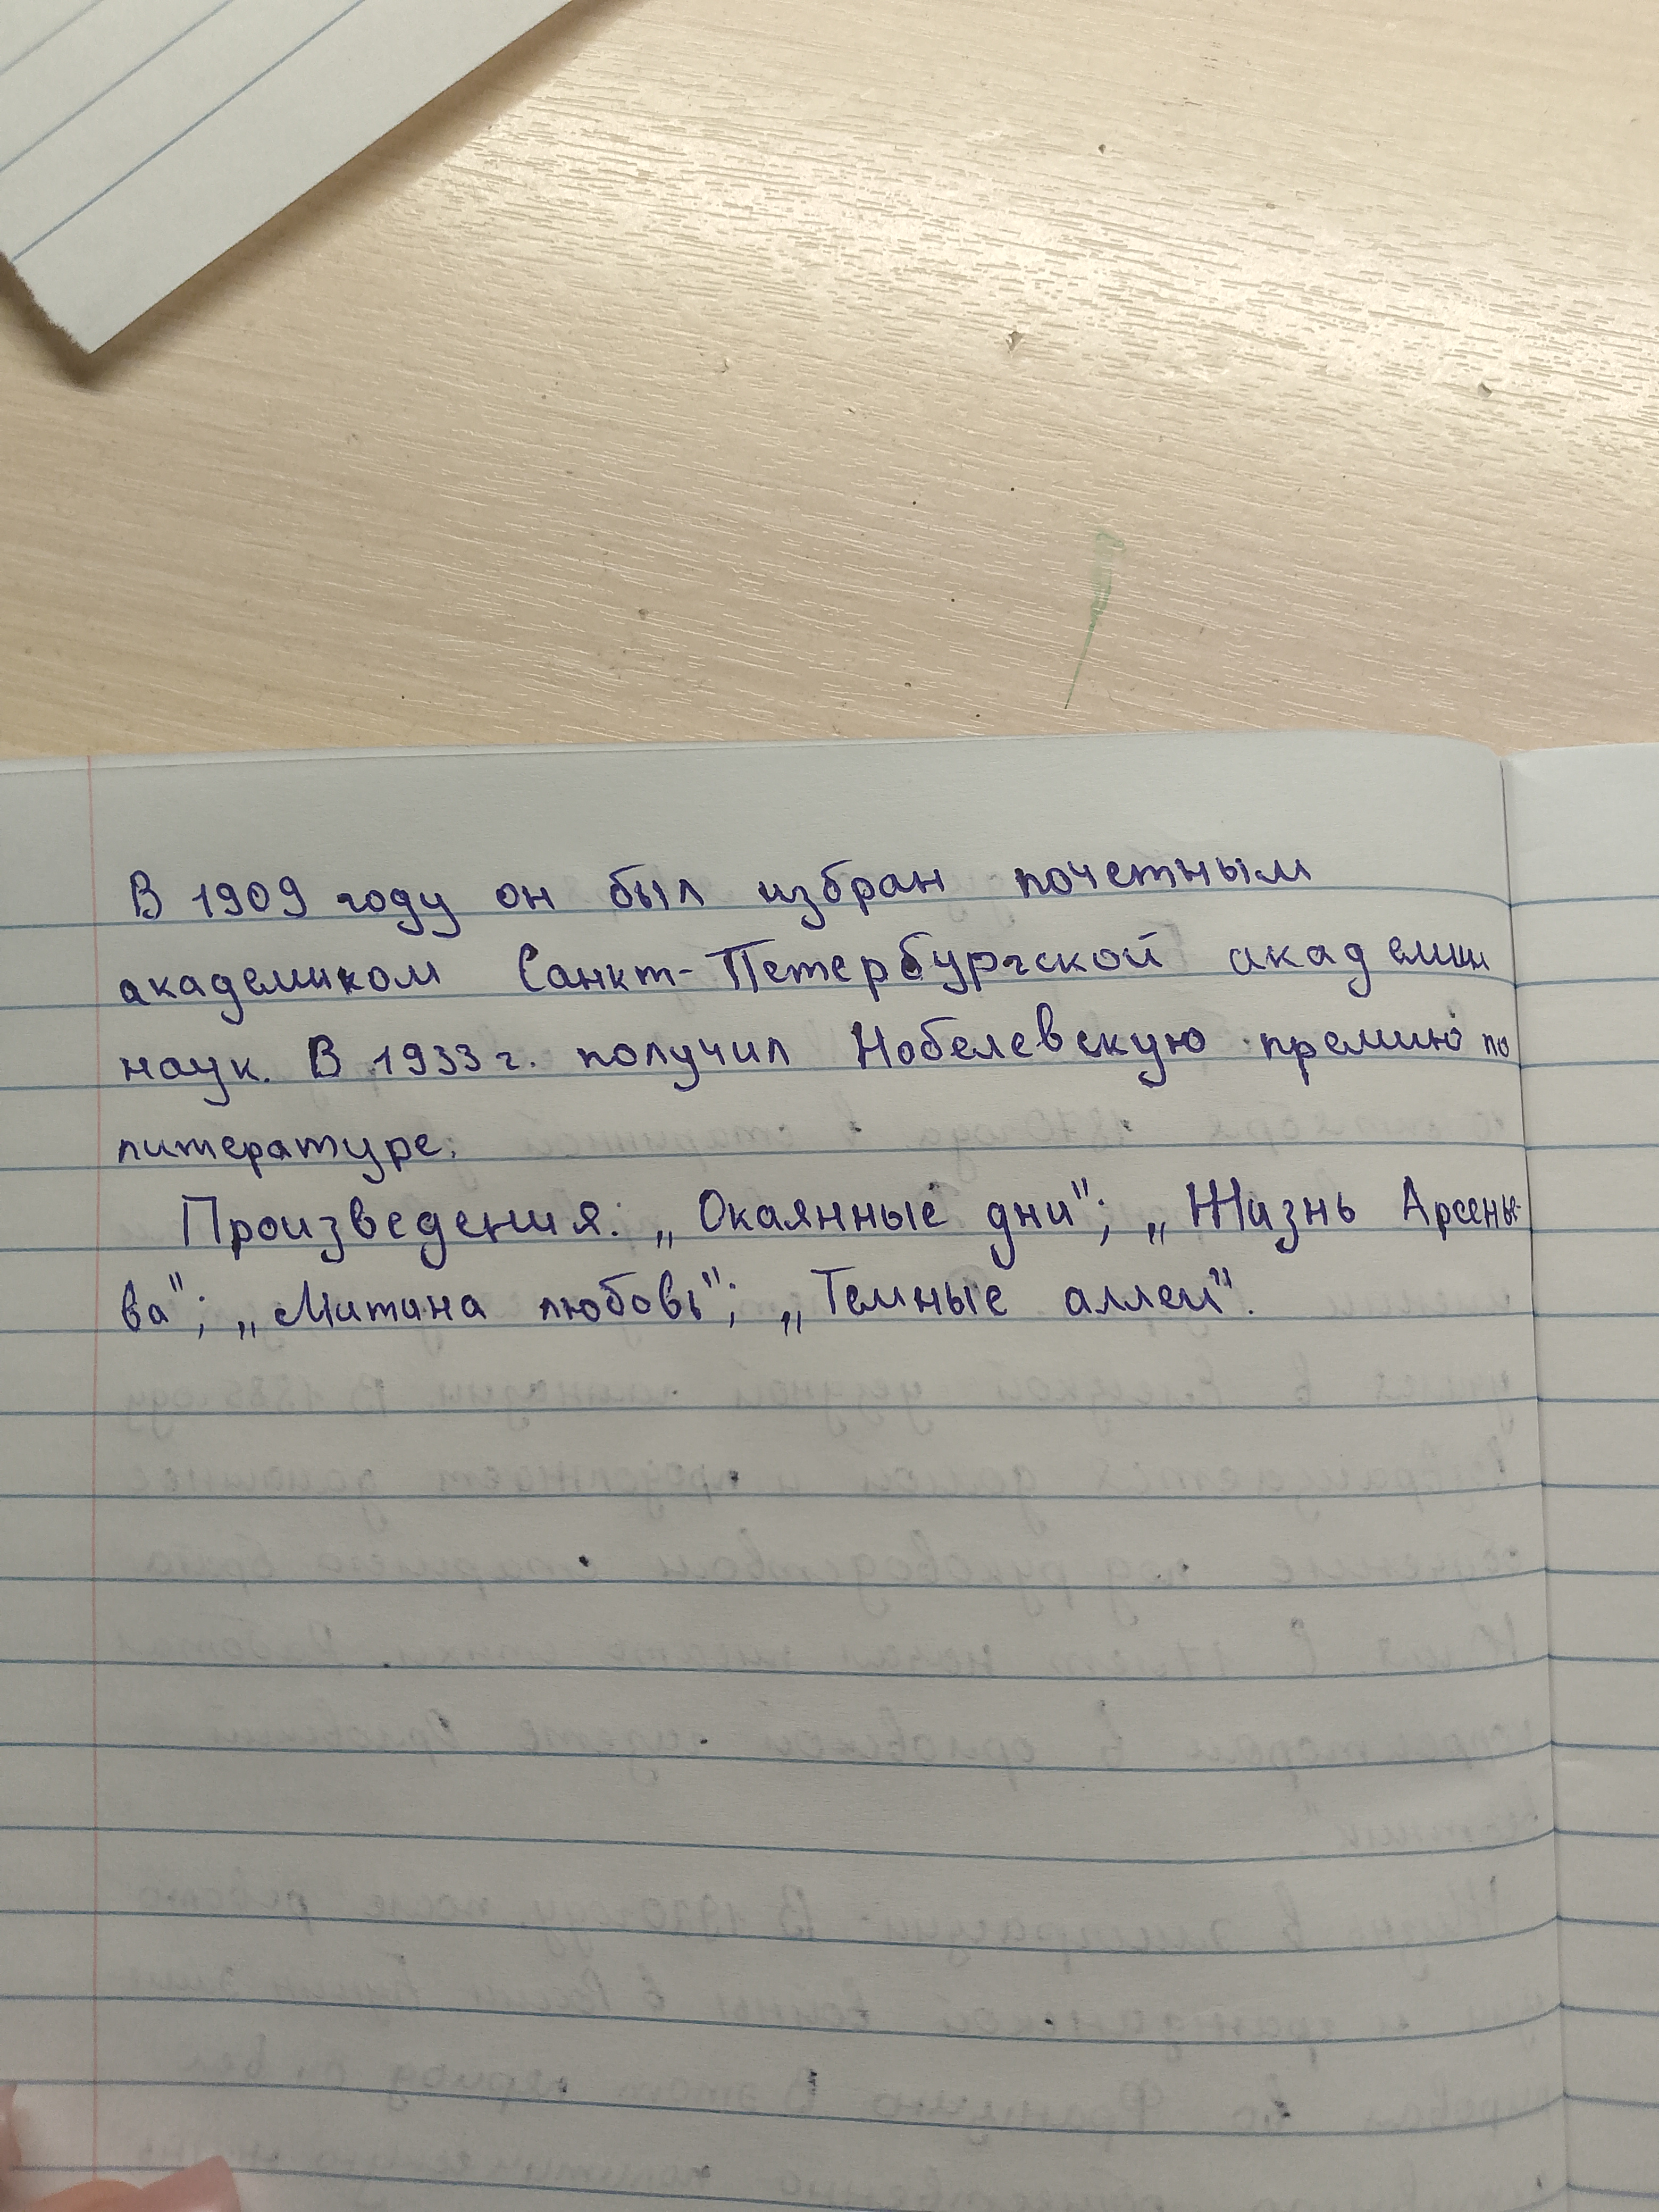 В 1909 году он был избран почетным
академиком Санкт-Петербургской академии
наук. В 1933 г. получил Нобелевскую премию по
литературе.
Произведения: „Окаянные дни"; „Жизнь Арсень-
ва"; „Митина любовь"; „Темные аллеи".